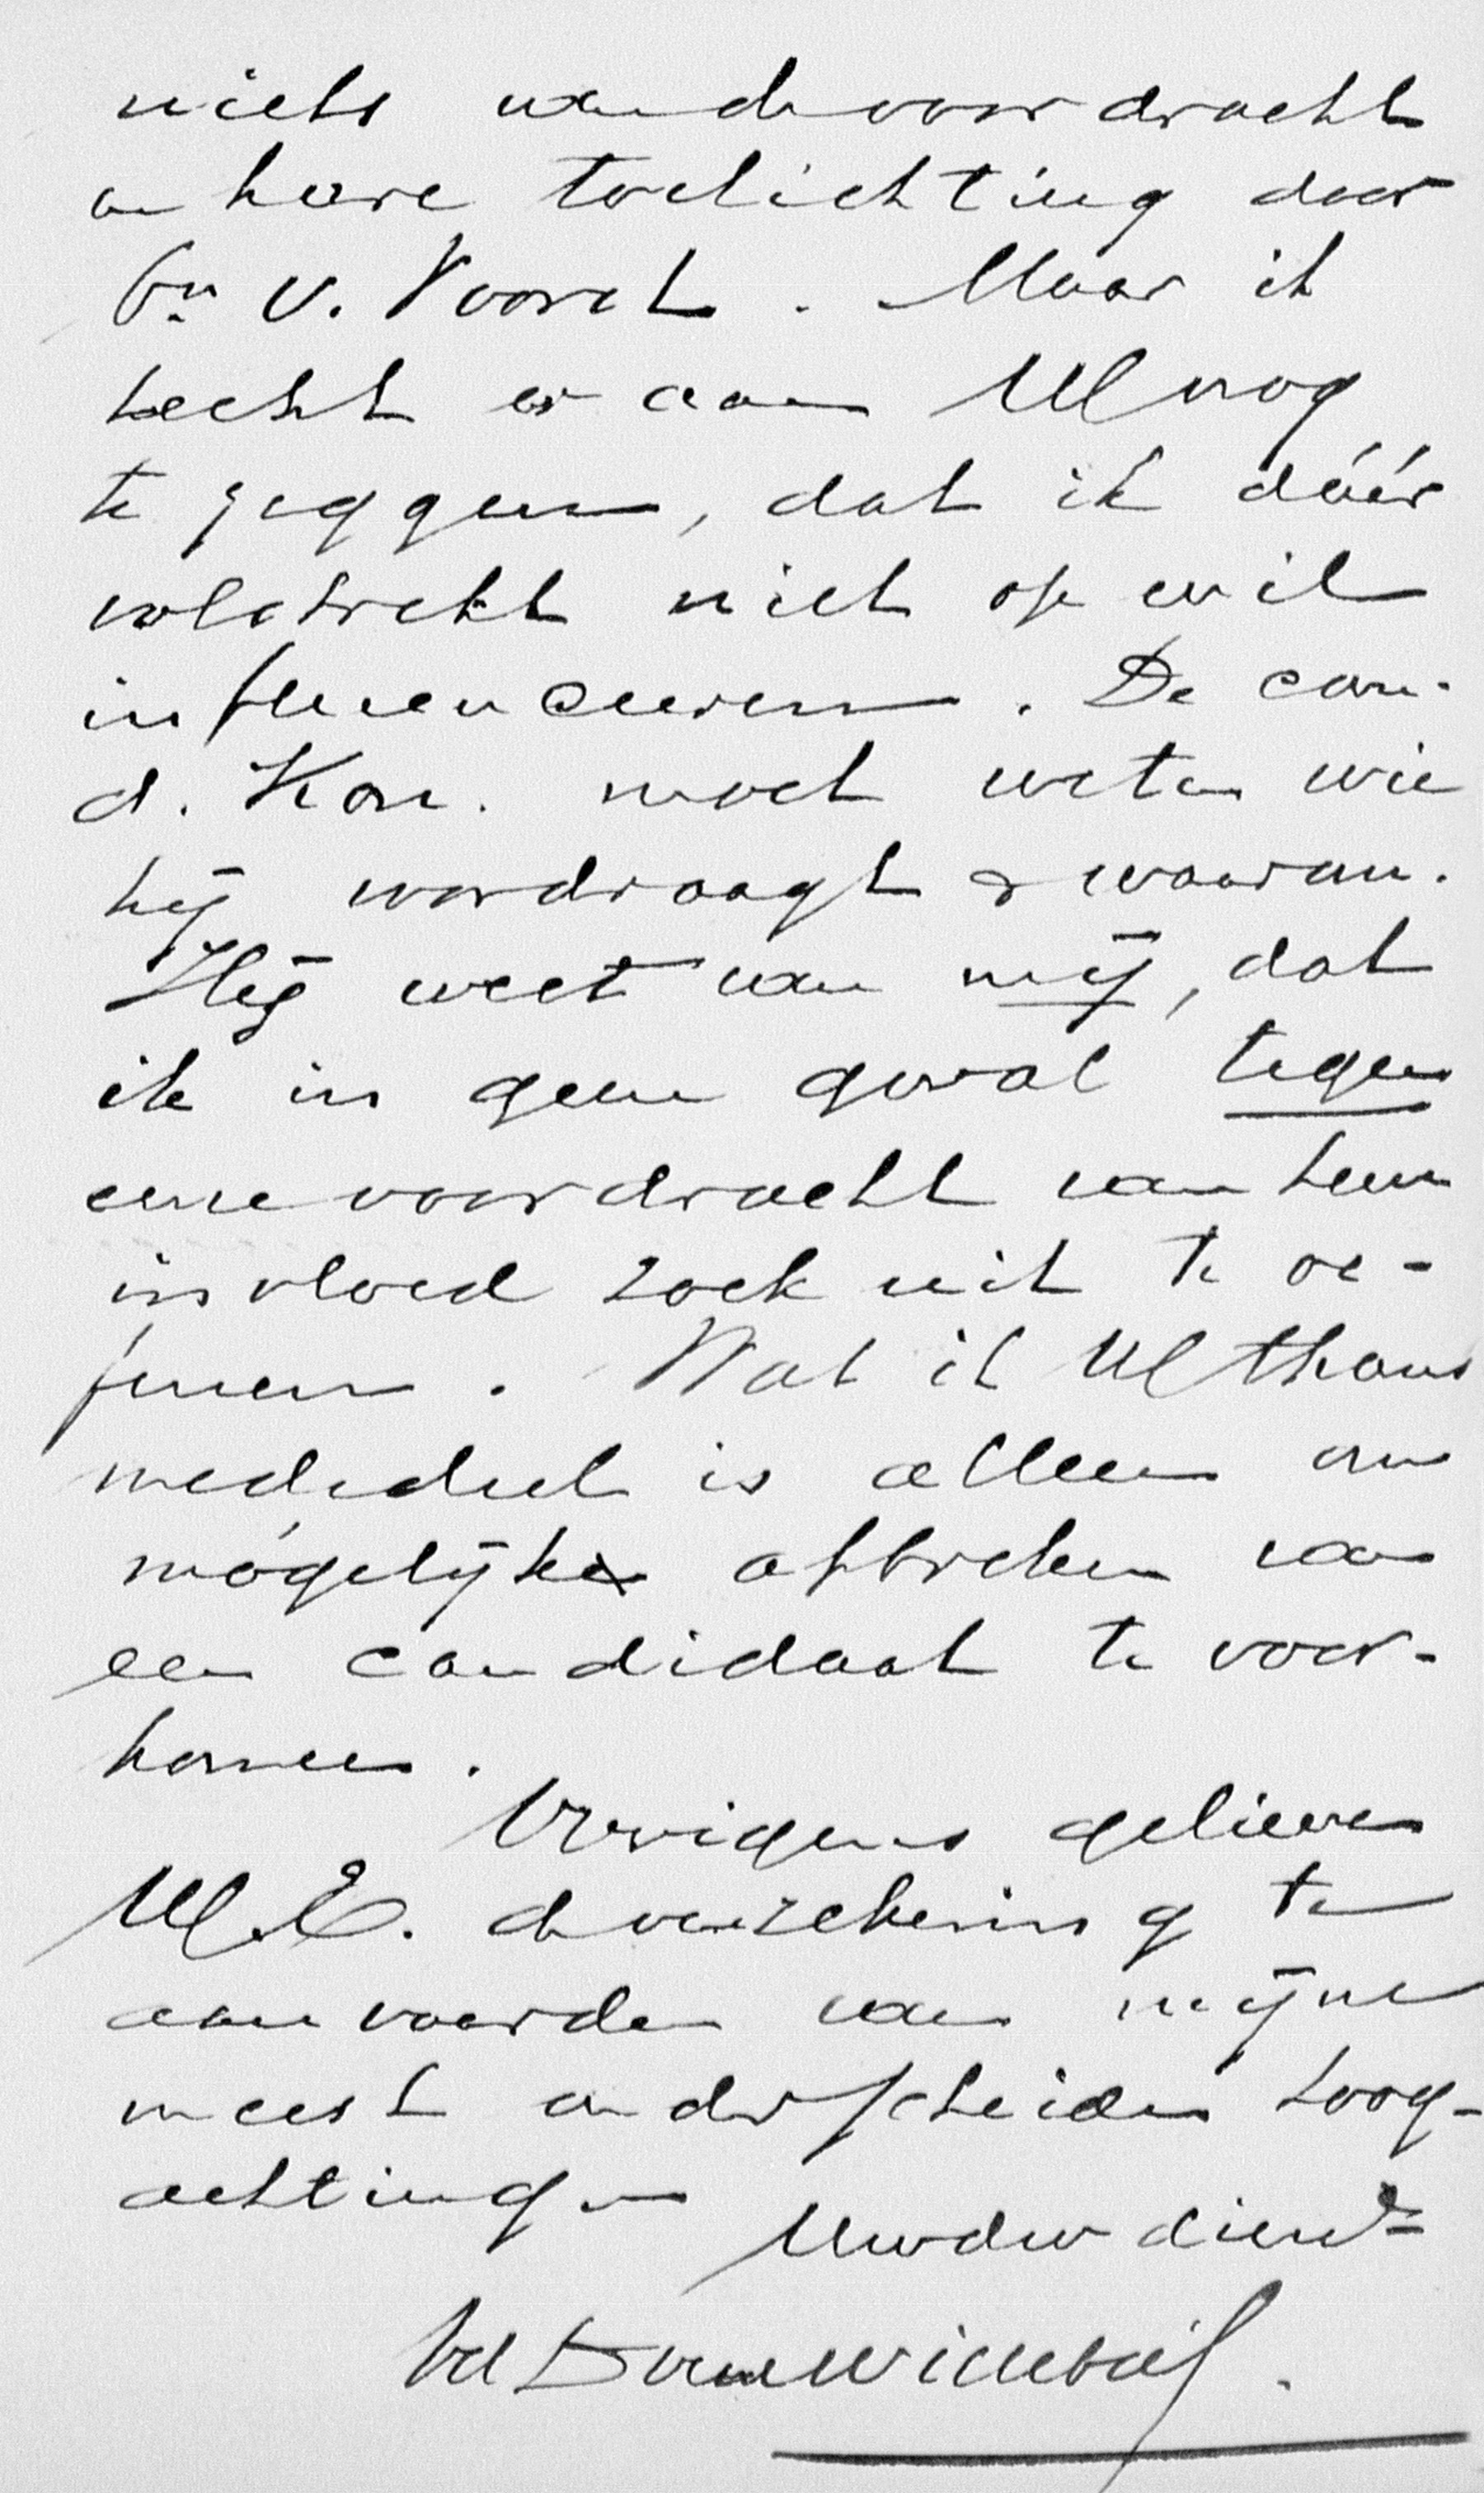 niets van de voordracht
en hare toelichting door
Gn v. Voorst. Maar ik
hecht er aan UEl nog
te zeggen, dat ik dáár
volstrekt niet op wil
influenceeren. De com.
d. Kon. moet weten wie
hij voordraagt & waarom.
Hij weet van mij, dat
ik in geen geval tegen
eene voordracht van hem
invloed zoek uit te oe-
fenen. Wat ik UEl thans
mededeel is alleen om
mógelijke afbreken van
een candidaat te voor-
komen.
Overigens gelieve
UE. de verzekering te
aanvaarden van mijne
meest onderscheiden hoog-
achting
Uwdw dien^r